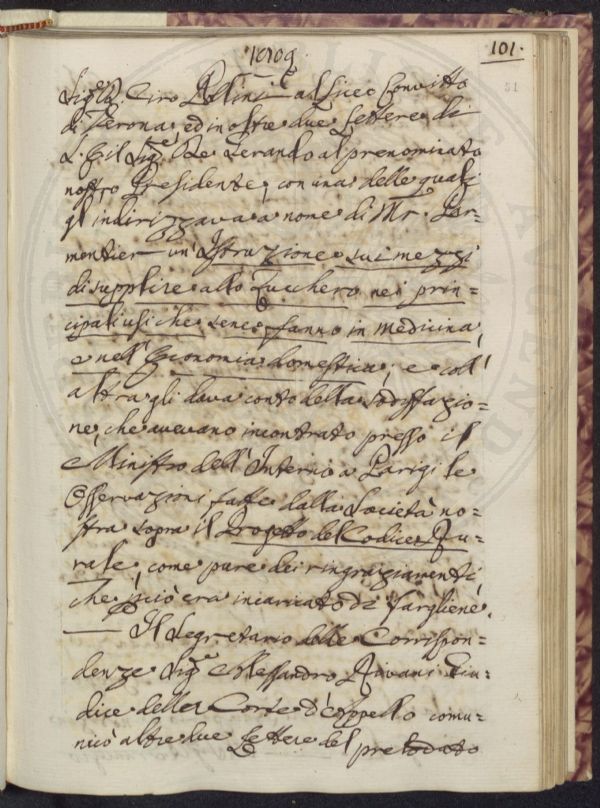 1809
101.
51
Sig.r D. Ciro Pollini al Liceo Convitto
di Verona, ed inoltre due Lettere di
S. E. il Sig.re De Gerando al prenominato
nostro Presidente, con una delle quali
gl'indirizzava a nome di Mr. Par=
mentier un'Istruzione sui mezzi
di supplire allo Zucchero nei prin=
cipali usi che sene fanno in medicina,
e nell'Economia domestica; e coll'
altra gli dava conto della Sodisfazio=
ne, che avevano incontrato presso il
Ministro dell'Interno a Parigi le
Osservazioni fatte dalla Società no=
stra sopra il Progetto del Codice Ru=
rale, come pure dei ringraziamenti,
che perciò era incaricato di fargliene.
— Il Segretario delle Corrispon=
denze Sig.r Alessandro Rivani Giu=
dice della Corte d'Appello comu=
nicò altre due Lettere del prelodato